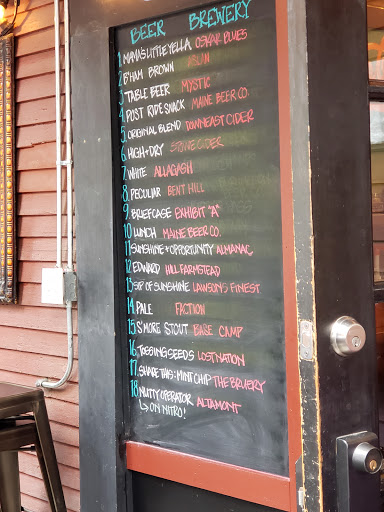 BEER BREWERY
1 MAMA'S LITTLE YELLA OSKAR BLUES
2 B'HAM BROWN
3 TABLE BEER MYSTIC
4 POST RIDE SNACK MAINE BEER CO.
5 ORIGINAL BLEND DOWNEAST CIDER
6 HIGH + DRY STOWE CIDER
7 WHITE ALLAGASH
8 PECULIAR BENT HILL
9 BRIEFCASE EXHIBIT "A"
10 LUNCH MAINE BEER CO.
11 SUNSHINE + OPPORTUNITY ALMANAC
12 EDWARD HILL FARMSTEAD
13 SIP OF SUNSHINE LAWSON'S FINEST
14 PALE FACTION
15 S'MORE STOUT BASE CAMP
16 TOSSING SEEDS LOST NATION
17 SHARE THIS: MINT CHIP THE BRUERY
18 NUTTY OPERATOR ALTAMONT
IS ON NITRO!